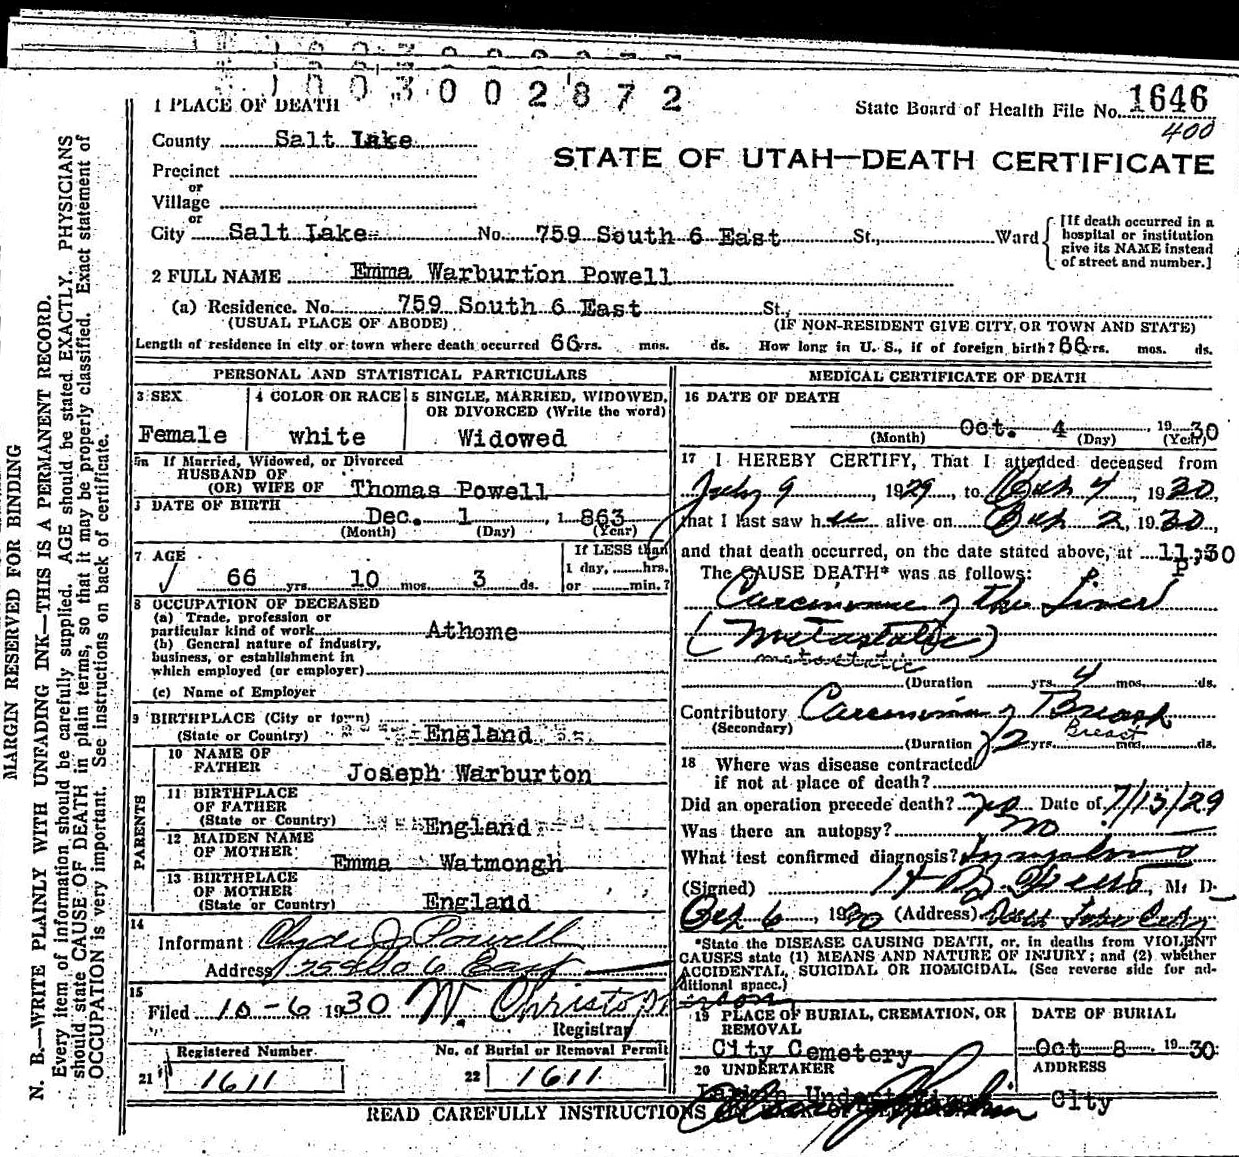 1003002872
1 PLACE OF DEATH
State Board of Health File No. 1646
400
County Salt Lake
STATE OF UTAH—DEATH CERTIFICATE
Precinct
or
Village
or
City Salt Lake No. 759 South 6 East St., Ward
[If death occurred in a
hospital or institution
give its NAME instead
of street and number.]
2 FULL NAME Emma Warburton Powell
(a) Residence. No. 759 South 6 East St.
(USUAL PLACE OF ABODE) (IF NON-RESIDENT GIVE CITY OR TOWN AND STATE)
Length of residence in city or town where death occurred 66 yrs. mos. ds. How long in U. S., if of foreign birth? 66 yrs. mos. ds.
PERSONAL AND STATISTICAL PARTICULARS
3 SEX
Female
4 COLOR OR RACE
white
5 SINGLE, MARRIED, WIDOWED,
OR DIVORCED (Write the word)
Widowed
5a If Married, Widowed, or Divorced
HUSBAND OF
(OR) WIFE OF Thomas Powell
DATE OF BIRTH
Dec. 1, 1863
(Month) (Day) (Year)
7 AGE
66 yrs. 10 mos. 3 ds.
If LESS than
1 day, hrs.
or min.?
8 OCCUPATION OF DECEASED
(a) Trade, profession or
particular kind of work Athome
(b) General nature of industry,
business, or establishment in
which employed (or employer)
(c) Name of Employer
9 BIRTHPLACE (City or town)
(State or Country) England
PARENTS
10 NAME OF
FATHER Joseph Warburton
11 BIRTHPLACE
OF FATHER
(State or Country) England
12 MAIDEN NAME
OF MOTHER Emma Watmongh
13 BIRTHPLACE
OF MOTHER
(State or Country) England
14
Informant Clyde J. Powell
Address 759 So 6 East
15
Filed 10-6 1930 W. Christopherson
Registrar
Registered Number
21 1611
No. of Burial or Removal Permit
22 1611
MEDICAL CERTIFICATE OF DEATH
16 DATE OF DEATH
Oct. 4, 1930
(Month) (Day) (Year)
17 I HEREBY CERTIFY, That I attended deceased from
July 9, 1929, to Oct 4, 1930,
that I last saw her alive on Oct 2, 1930,
and that death occurred, on the date stated above, at 11:30
P.
The CAUSE DEATH* was as follows:
Carcinoma of the Liver
(Metastatic)
metastatic
(Duration yrs. 4 mos. ds.
Contributory Carcinoma of Breast
(Secondary)
Breast
(Duration 2 yrs. mos. ds.
18 Where was disease contracted
if not at place of death?
Did an operation precede death? yes Date of 7/13/29
Was there an autopsy? no
What test confirmed diagnosis?
(Signed) M. D.
Oct 6, 1930 (Address) Salt Lake City
*State the DISEASE CAUSING DEATH, or, in deaths from VIOLENT
CAUSES state (1) MEANS AND NATURE OF INJURY; and (2) whether
ACCIDENTAL, SUICIDAL OR HOMICIDAL. (See reverse side for ad-
ditional space.)
19 PLACE OF BURIAL, CREMATION, OR
REMOVAL
City Cemetery
DATE OF BURIAL
Oct 8 1930
20 UNDERTAKER
ADDRESS
City
READ CAREFULLY INSTRUCTIONS
MARGIN RESERVED FOR BINDING
N. B.—WRITE PLAINLY WITH UNFADING INK—THIS IS A PERMANENT RECORD.
Every item of information should be carefully supplied. AGE should be stated EXACTLY. PHYSICIANS
should state CAUSE OF DEATH in plain terms, so that it may be properly classified. Exact statement of
OCCUPATION is very important. See instructions on back of certificate.